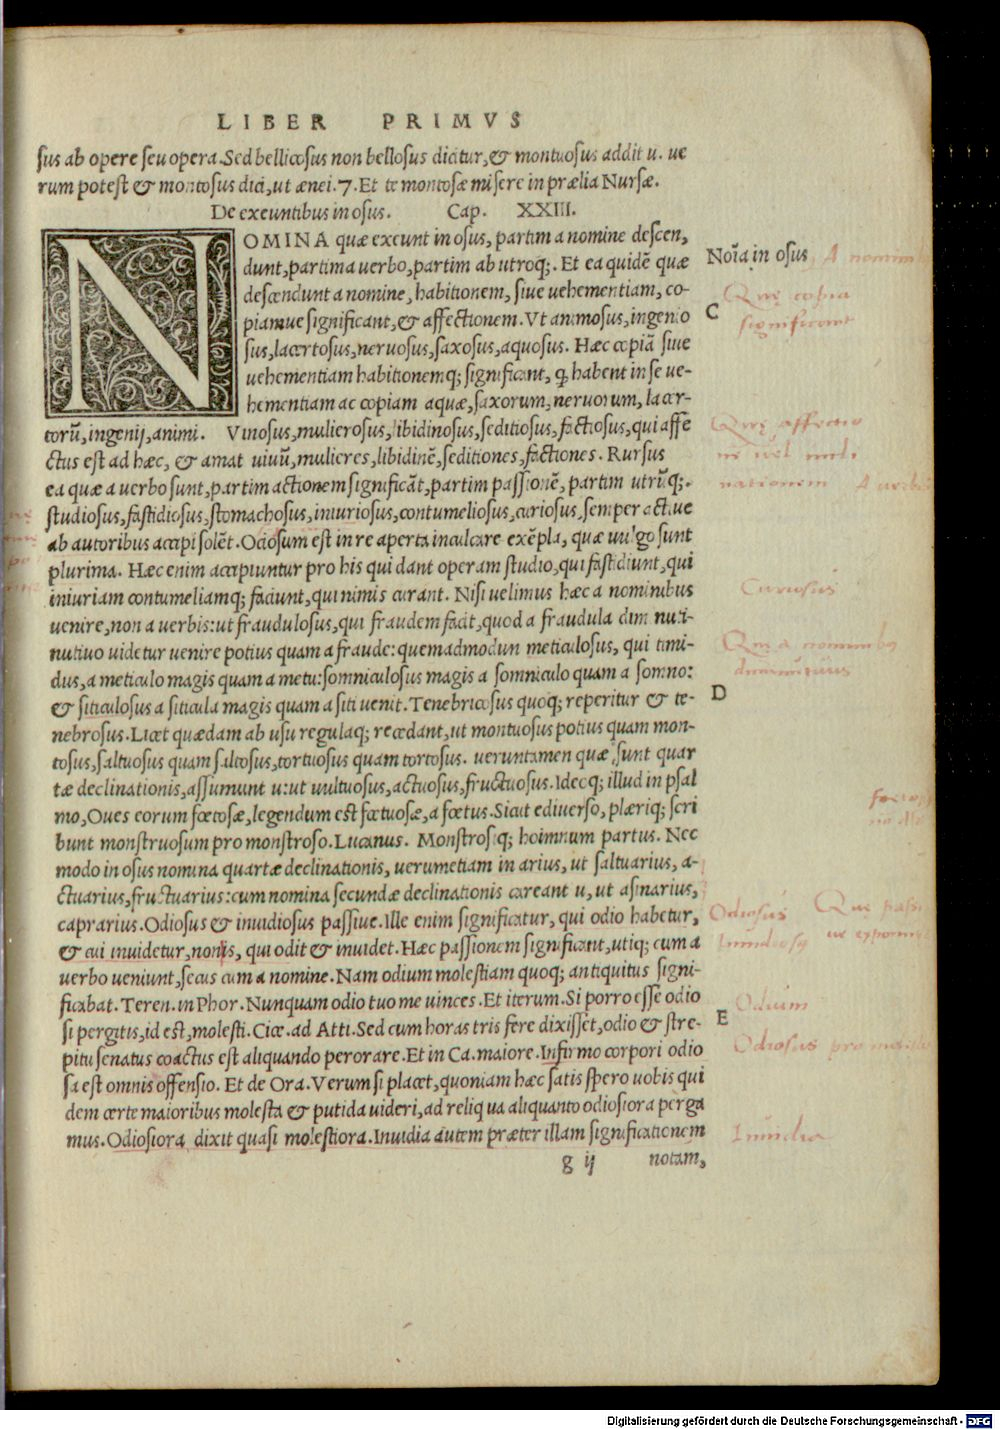 LIBER PRIMVS
sus ab opere seu opera. Sed bellicosus non bellosus dicitur, & montuosus addit u. ue
rum potest & montosus dici, ut ænei. 7. Et te montosæ misere in prælia Nursæ.
De exeuntibus in osus. Cap. XXIII.
NOMINA quæ exeunt in osus, partim a nomine descen,
dunt, partim a uerbo, partim ab utroq;. Et ea quidē quæ
descendunt a nomine, habitionem, siue uehementiam, co-
piamue significant, & affectionem. Vt animosus, ingenio
sus, lacertosus, neruosus, saxosus, aquosus. Hæc copiā siue
uehementiam habitionemq; significant, ꝙ habent in se ue-
hementiam ac copiam aquæ, saxorum, neruorum, lacer-
torū, ingenij, animi. Vinosus, mulierosus, libidinosus, seditiosus, factiosus, qui affe
ctus est ad hæc, & amat uinū, mulieres, libidinē, seditiones, factiones. Rursus
ea quæ a uerbo sunt, partim actionem significāt, partim passionē, partim utrūq;.
studiosus, fastidiosus, stomachosus, iniuriosus, contumeliosus, curiosus, semper actiue
ab autoribus accipi solēt. Ociosum est in re aperta inculcare exēpla, quæ uulgo sunt
plurima. Hæc enim accipiuntur pro his qui dant operam studio, qui fastidiunt, qui
iniuriam contumeliamq; faciunt, qui nimis curant. Nisi uelimus hæc a nominibus
uenire, non a uerbis: ut fraudulosus, qui fraudem facit, quod a fraudula dim nuti-
nutiuo uidetur uenire potius quam a fraude: quemadmodun meticulosus, qui timi-
dus, a meticulo magis quam a metu: somniculosus magis a somniculo quam a somno:
& siticulosus a siticula magis quam a siti uenit. Tenebricosus quoq; reperitur & te-
nebrosus. Licet quædam ab usu regulaq; recedant, ut montuosus potius quam mon-
tosus, saltuosus quam saltosus, tortuosus quam tortosus. ueruntamen quæ sunt quar
tæ declinationis, assumunt u: ut uultuosus, actuosus, fructuosus. Ideoq; illud in psal
mo, Oues eorum fœtosæ, legendum est fœtuosæ, a fœtus. Sicut ediuerso, plæriq; scri
bunt monstruosum pro monstroso. Lucanus. Monstrosiq; hoimnum partus. Nec
modo in osus nomina quartæ declinationis, uerumetiam in arius, ut saltuarius, a-
ctuarius, fructuarius: cum nomina secundæ declinationis careant u, ut asinarius,
caprarius. Odiosus & inuidiosus passiue. Ille enim significatur, qui odio habetur,
& cui inuidetur, non is, qui odit & inuidet. Hæc passionem significant, utiq; cum a
uerbo ueniunt, secus cum a nomine. Nam odium molestiam quoq; antiquitus signi-
ficabat. Teren. in Phor. Nunquam odio tuo me uinces. Et iterum. Si porro esse odio
si pergitis, id est, molesti. Cice. ad Atti. Sed cum horas tris fere dixisset, odio & stre-
pitu senatus coactus est aliquando perorare. Et in Ca. maiore. Infirmo corpori odio
sa est omnis offensio. Et de Ora. Verum si placet, quoniam hæc satis spero uobis qui
dem certe maioribus molesta & putida uideri, ad reliq ua aliquanto odiosiora perga
mus. Odiosiora dixit quasi molestiora. Inuidia autem præter illam significationem
g ij notam,
Noīa in osus
A
Que copia
significant
C
Curiosus
Que a nominibus
D
Odiosus
Inuidiosus
Odium
E
Odiosus
Inuidia
Digitalisierung gefördert durch die Deutsche Forschungsgemeinschaft - DFG